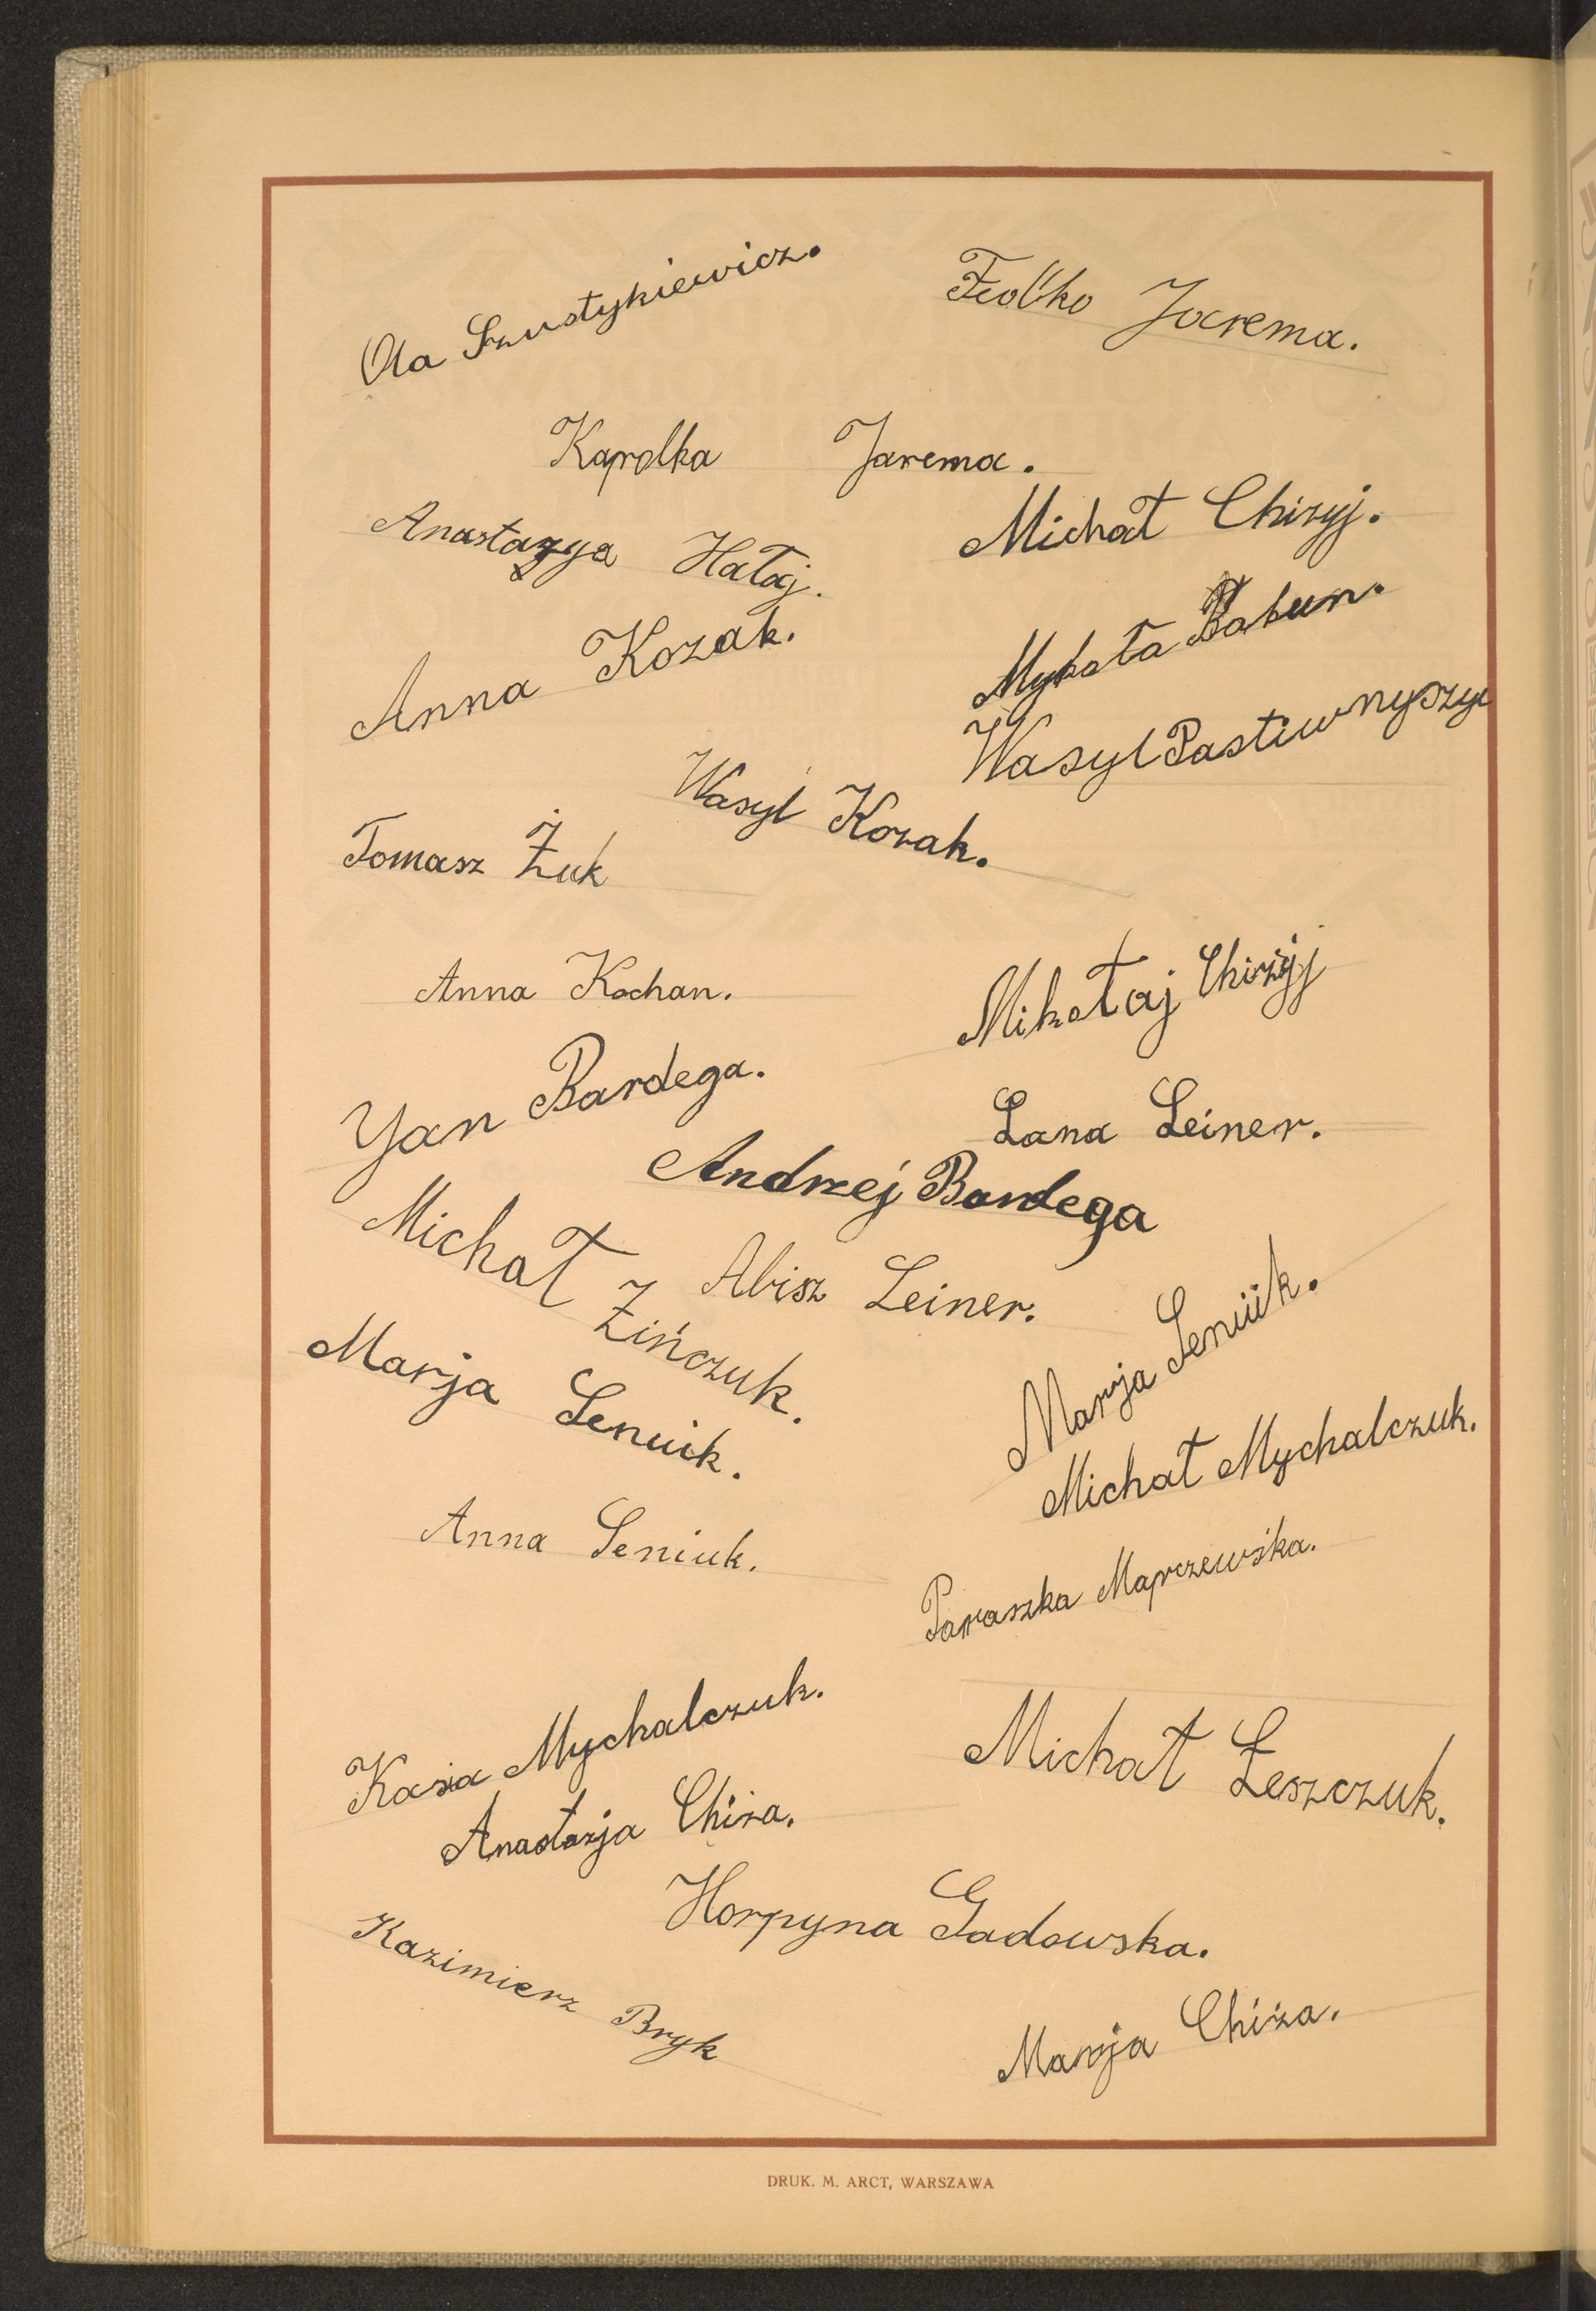 Ola Szustykiewicz.
Fedko Jarema.
Karolka Jarema.
Anastazya Hałaj.
Michał Chizyj.
Anna Kozak.
Mykoła Babun.
Wasyl Pastiwnyszyn
Wasyl Kozak.
Tomasz Żuk
Anna Kochan.
Mikołaj Chiżyj
Yan Bardega.
Lana Leiner.
Andrzej Bardega
Michał Zińczuk.
Abisz Leiner.
Marja Seniuk.
Marja Seniuk.
Michał Mychalczuk.
Anna Seniuk.
Paraszka Marczewska.
Kasia Mychalczuk.
Michał Łeszczuk.
Anastazja Chiża.
Horpyna Gadowska.
Kazimierz Bryk
Marja Chiża.
DRUK. M. ARCT, WARSZAWA